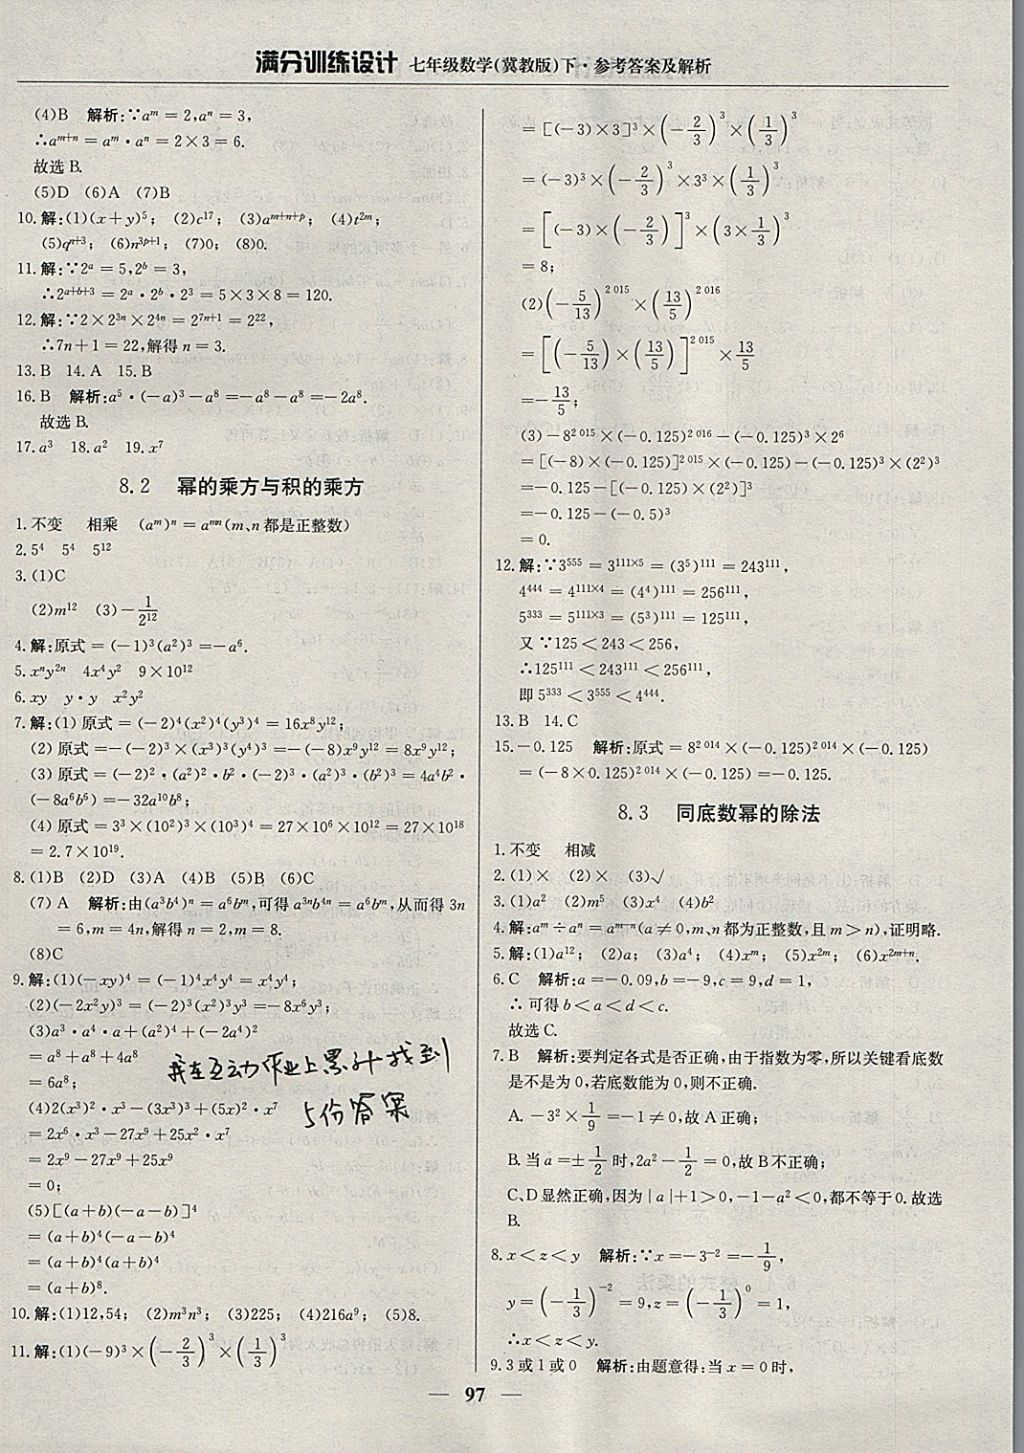 满分训练设计 七年级数学(冀教版)下·参考答案及解析
(4)B 解析:∵aᵐ=2,aⁿ=3,
∴aᵐ⁺ⁿ=aᵐ·aⁿ=2×3=6.
故选B.
(5)D (6)A (7)B
10.解:(1)(x+y)⁵; (2)c¹⁷; (3)aᵐ⁺ⁿ⁺ᵖ; (4)t²ᵐ;
(5)qⁿ⁺³; (6)n³ᵖ⁺¹; (7)0; (8)0.
11.解:∵2ᵃ=5,2ᵇ=3,
∴2ᵃ⁺ᵇ⁺³=2ᵃ·2ᵇ·2³=5×3×8=120.
12.解:∵2×2³ⁿ×2⁴ⁿ=2⁷ⁿ⁺¹=2²²,
∴7n+1=22,解得n=3.
13.B 14.A 15.B
16.B 解析:a⁵·(-a)³-a⁸=-a⁸-a⁸=-2a⁸.
故选B.
17.a³ 18.a² 19.x⁷
8.2 幂的乘方与积的乘方
1.不变 相乘 (aᵐ)ⁿ=aᵐⁿ(m、n都是正整数)
2.5⁴ 5⁴ 5¹²
3.(1)C
(2)m¹² (3)-1/2¹²
4.解:原式=(-1)³(a²)³=-a⁶.
5.xⁿy²ⁿ 4x⁴y² 9×10¹²
6.xy y·y x²y²
7.解:(1)原式=(-2)⁴(x²)⁴(y³)⁴=16x⁸y¹²;
(2)原式=-(-2)³×(x³)³(y⁴)³=-(-8)x⁹y¹²=8x⁹y¹²;
(3)原式=(-2)²·(a²)²·b²·(-2)³·(a²)³·(b²)³=4a⁴b²·
(-8a⁶b⁶)=-32a¹⁰b⁸;
(4)原式=3³×(10²)³×(10³)⁴=27×10⁶×10¹²=27×10¹⁸
=2.7×10¹⁹.
8.(1)B (2)D (3)A (4)B (5)B (6)C
(7)A 解析:由(a³b⁴)ⁿ=a⁶bᵐ,可得a³ⁿb⁴ⁿ=a⁶bᵐ,从而得3n
=6,m=4n,解得n=2,m=8.
(8)C
9.解:(1)(-xy)⁴=(-1)⁴x⁴y⁴=x⁴y⁴;
(2)(-2x²y)³=(-2)³(x²)³y³=-8x⁶y³;
(3)a³·a⁴·a+(a²)⁴+(-2a⁴)²
=a⁸+a⁸+4a⁸
=6a⁸;
(4)2(x³)²·x³-(3x³)³+(5x)²·x⁷
=2x⁶·x³-27x⁹+25x²·x⁷
=2x⁹-27x⁹+25x⁹
=0;
(5)[(a+b)(-a-b)]⁴
=(a+b)⁴(-a-b)⁴
=(a+b)⁴(a+b)⁴
=(a+b)⁸.
10.解:(1)12,54; (2)m³n³; (3)225; (4)216a⁹; (5)8.
11.解:(1)(-9)³×(-2/3)³×(1/3)³
我在互动作业上累计找到
5份答案
=[(-3)×3]³×(-2/3)³×(1/3)³
=(-3)³×(-2/3)³×3³×(1/3)³
=[(-3)×(-2/3)]³×(3×1/3)³
=8;
(2)(-5/13)²⁰¹⁵×(13/5)²⁰¹⁶
=[(-5/13)×(13/5)]²⁰¹⁵×13/5
=-13/5;
(3)-8²⁰¹⁵×(-0.125)²⁰¹⁶-(-0.25)³×2⁶
=[(-8)×(-0.125)]²⁰¹⁵×(-0.125)-(-0.25)³×(2²)³
=-0.125-[(-0.25)×(2²)]³
=-0.125-(-0.5)³
=0.
12.解:∵3⁵⁵⁵=3¹¹¹ˣ⁵=(3⁵)¹¹¹=243¹¹¹,
4⁴⁴⁴=4¹¹¹ˣ⁴=(4⁴)¹¹¹=256¹¹¹,
5³³³=5¹¹¹ˣ³=(5³)¹¹¹=125¹¹¹,
又∵125<243<256,
∴125¹¹¹<243¹¹¹<256¹¹¹,
即5³³³<3⁵⁵⁵<4⁴⁴⁴.
13.B 14.C
15.-0.125 解析:原式=8²⁰¹⁴×(-0.125)²⁰¹⁴×(-0.125)
=(-8×0.125)²⁰¹⁴×(-0.125)=-0.125.
8.3 同底数幂的除法
1.不变 相减
2.(1)× (2)× (3)√
3.(1)a² (2)m⁵ (3)x⁴ (4)b²
4.解:aᵐ÷aⁿ=aᵐ⁻ⁿ(a≠0,m、n都为正整数,且m>n),证明略.
5.解:(1)a¹²; (2)a; (3)a⁴; (4)xᵐ; (5)x²ᵐ; (6)x²ᵐ⁺ⁿ.
6.C 解析:a=-0.09,b=-9,c=9,d=1,
∴可得b<a<d<c.
故选C.
7.B 解析:要判定各式是否正确,由于指数为零,所以关键看底数
是不是为0,若底数能为0,则不正确.
A.-3²×1/9=-1≠0,故A正确;
B.当a=±1/2时,2a²-1/2=0,故B不正确;
C、D显然正确,因为|a|+1>0,-1-a²<0,都不等于0.故选
B.
8.x<z<y 解析:∵x=-3⁻²=-1/9,
y=(-1/3)⁻²=9,z=(-1/3)⁰=1,
∴x<z<y.
9.3或1或0 解析:由题意得:当x=0时,
— 97 —